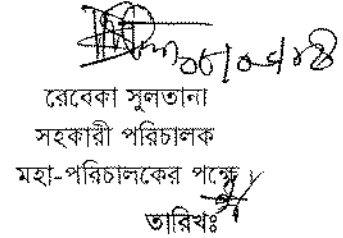 রেবেকা সুলতানা
সহকারী পরিচালক
মহা-পরিচালকের পক্ষে
তারিখঃ